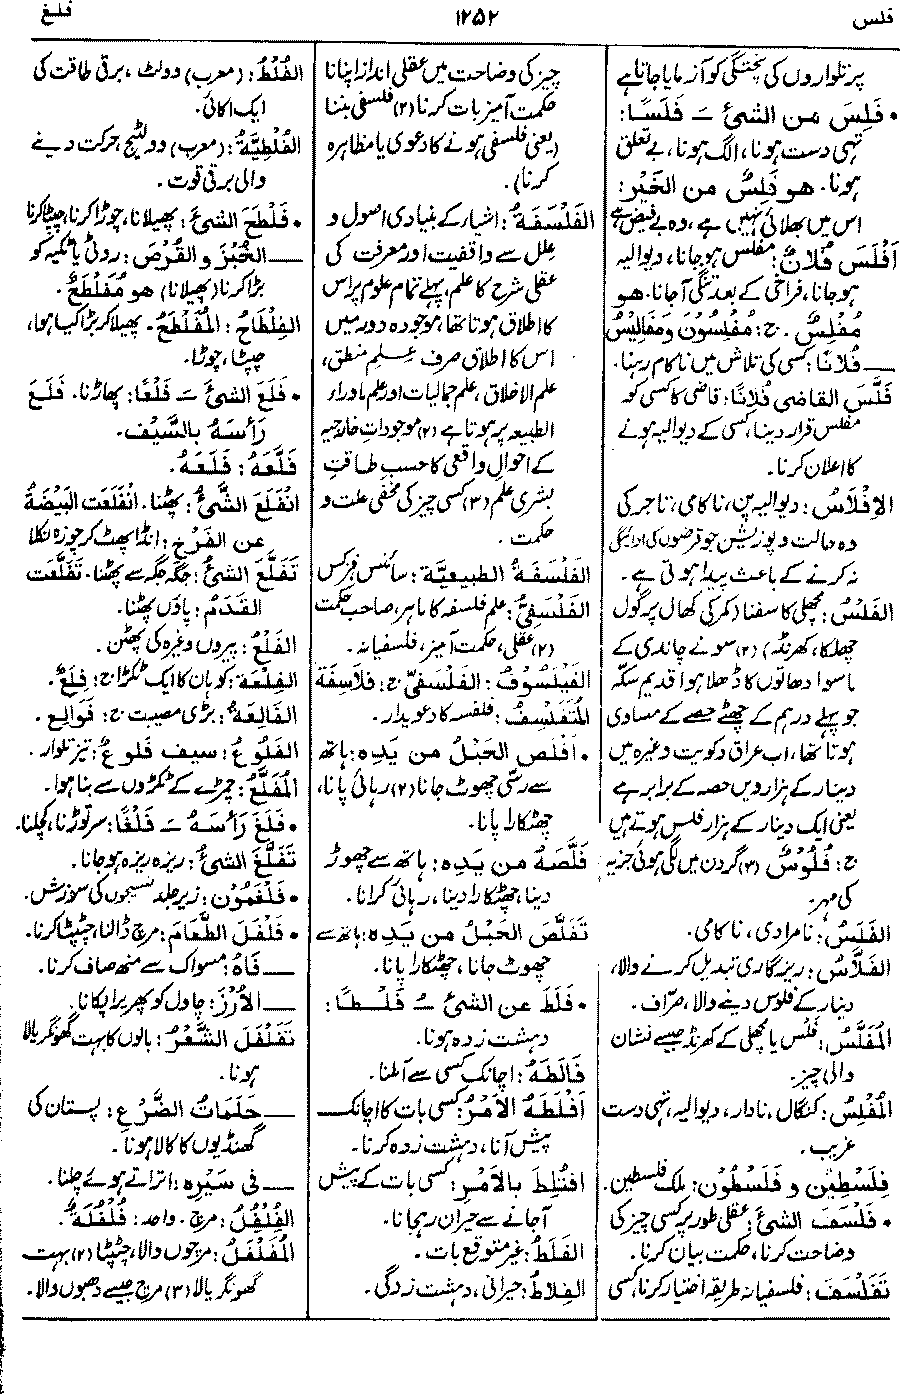 فلس
۱۲۵۲
فلغ
پر تلواروں کی پختگی کو آزمایا جاتا ہے
• فَلِسَ من الشیٔ ـَ فَلَسًا:
تہی دست ہونا، الگ ہونا، بے تعلق
ہونا۔ ھو فَلِسٌ من الخَیْر:
اس میں بھلائی نہیں ہے، وہ بے فیض ہے
اَفْلَسَ فُلانٌ: مفلس ہوجانا، دیوالیہ
ہوجانا، فراخی کے بعد تنگی آجانا۔ ھو
مُفْلِسٌ۔ ج: مُفْلِسُوْنَ وَمَفَالِیْسُ
ــــ فُلانًا: کسی کی تلاش میں ناکام رہنا۔
فَلَّسَ القاضی فُلانًا: قاضی کا کسی کو
مفلس قرار دینا، کسی کے دیوالیہ ہونے
کا اعلان کرنا۔
الاِفْلَاسُ: دیوالیہ پن، ناکامی، تاجر کی
وہ حالت و پوزیشن جو قرضوں کی ادائیگی
نہ کرنے کے باعث پیدا ہوتی ہے۔
الفَلْسُ: مچھلی کا سفنا (کمر کی کھال پر گول
چھلکا، کھرنڈ) (۲) سونے چاندی کے
ماسوا دھاتوں کا ڈھلا ہوا قدیم سکّہ
جو پہلے درہم کے چھٹے حصے کے مساوی
ہوتا تھا، اب عراق و کویت وغیرہ میں
دینار کے ہزارویں حصہ کے برابر ہے
یعنی ایک دینار کے ہزار فلس ہوتے ہیں
ج: فُلُوْسٌ (۳) گردن میں لگی ہوئی جزیہ
کی مہر۔
الفَلَسُ: نامرادی، ناکامی۔
الفَلَّاسُ: ریزگاری تبدیل کرنے والا،
دینار کے فلوس دینے والا، صرّاف۔
المُفَلَّسُ: فلس یا مچھلی کے کھرنڈ جیسے نشان
والی چیز۔
المُفْلِسُ: کنگال، نادار، دیوالیہ، تہی دست
غریب۔
فِلَسْطِیْن و فَلَسْطُوْن: ملک فلسطین۔
• فَلْسَفَ الشیٔ: عقلی طور پر کسی چیز کی
وضاحت کرنا، حکمت بیان کرنا۔
تَفَلْسَفَ: فلسفیانہ طریقہ اختیار کرنا، کسی
چیز کی وضاحت میں عقلی انداز اپنانا
حکمت آمیز بات کرنا (۲) فلسفی بننا
(یعنی فلسفی ہونے کا دعویٰ یا مظاہرہ
کرنا)۔
الفَلْسَفَةُ: اشیاء کے بنیادی اصول و
علل سے واقفیت اور معرفت کی
عقلی شرح کا علم، پہلے تمام علوم پر اس
کا اطلاق ہوتا تھا، موجودہ دور میں
اس کا اطلاق صرف علم منطق،
علم الاخلاق، علم جمالیات اور علم ماوراء
الطبیعہ پر ہوتا ہے (۲) موجودات خارجیہ
کے احوال واقعی کا حسب طاقتِ
بشری علم (۳) کسی چیز کی مخفی علت و
حکمت۔
الفَلْسَفَةُ الطبیعیّة: سائنس فزکس
الفَلْسَفِیُّ: علم فلسفہ کا ماہر، صاحب حکمت
(۲) عقلی، حکمت آمیز، فلسفیانہ۔
الفَیْلَسُوْفُ: الفَلْسَفِیّ ج: فَلَاسِفَة
المُتَفَلْسِفُ: فلسفہ کا دعویدار۔
• اَفْلَصَ الحَبْلُ من یَدِہٖ: ہاتھ
سے رسّی چھوٹ جانا (۲) رہائی پانا،
چھٹکارا پانا۔
فَلَّصَهُ من یَدِہٖ: ہاتھ سے چھوڑ
دینا، چھٹکارا دینا، رہائی کرانا۔
تَفَلَّصَ الحَبْلُ من یَدِہٖ: ہاتھ سے
چھوٹ جانا، چھٹکارا پانا۔
• فَلَطَ عن الشیٔ ـُ فَلْطًا:
دہشت زدہ ہونا۔
فَالَطَهُ: اچانک کسی سے آملنا۔
اَفْلَطَهُ الاَمْرُ: کسی بات کا اچانک
پیش آنا، دہشت زدہ کرنا۔
افْتُلِطَ بالاَمْرِ: کسی بات کے پیش
آجانے سے حیران رہجانا۔
الفَلَطُ: غیر متوقع بات۔
الفِلَاطُ: حیرانی، دہشت زدگی۔
الفُلْطُ: (معرب) وولٹ، برقی طاقت کی
ایک اکائی۔
الفُلْطِیَّةُ: (معرب) وولٹیج، حرکت دینے
والی برقی قوت۔
• فَلْطَحَ الشیٔ: پھیلانا، چوڑا کرنا، چپٹا کرنا
ــــ الخُبْزَ و القُرْصَ: روٹی یا ٹکیہ کو
بڑا کرنا (پھیلانا) ھو مُفَلْطَحٌ۔
الفِلْطَاحُ: المُفَلْطَحُ۔ پھیلا کر بڑا کیا ہوا،
چپٹا، چوڑا۔
• فَلَعَ الشیٔ ـَ فَلْعًا: پھاڑنا۔ فَلَعَ
رَأسَهُ بالسَّیْف۔
فَلَّعَهُ: فَلَعَهُ۔
انْفَلَعَ الشَّیْٔ: پھٹنا۔ انْفَلَعَت البَیْضَةُ
عن الفَرْخِ: انڈا پھٹ کر چوزہ نکلا
تَفَلَّعَ الشیٔ: جگہ جگہ سے پھٹنا۔ تَفَلَّعَت
القَدَمُ: پاؤں پھٹنا۔
الفَلْعُ: پیروں وغیرہ کی پھٹن۔
الفِلْعَةُ: کوہان کا ایک ٹکڑا ج: فِلَعٌ۔
الفَالِعَةُ: بڑی مصیبت ج: فَوَالِع۔
الفَلُوْعُ: سیف فلوعٌ: تیز تلوار۔
المُفَلَّعُ: چمڑے کے ٹکڑوں سے بنا ہوا۔
• فَلَغَ رَأسَهُ ـَ فَلْغًا: سر توڑنا، کچلنا۔
تَفَلَّغَ الشیٔ: ریزہ ریزہ ہوجانا۔
• فَلْغَمُوْن: زیر جلد نسیجوں کی سوزش۔
• فَلْفَلَ الطَّعَامَ: مرچ ڈالنا، چٹپٹا کرنا۔
ــــ فَاہُ: مسواک سے منھ صاف کرنا۔
ــــ الأرُزَّ: چاول کو بھربرا پکانا۔
تَفَلْفَلَ الشَّعْرُ: بالوں کا بہت گھونگریالا
ہونا۔
ــــ حَلَمَاتُ الضَّرْعِ: پستان کی
گھنڈیوں کا کالا ہونا۔
ــــ فی سَیْرِہٖ: اتراتے ہوئے چلنا۔
الفُلْفُلُ: مرچ۔ واحد: فُلْفُلَةٌ۔
المُفَلْفَلُ: مرچوں والا، چٹپٹا (۲) بہت
گھونگریالا (۳) مرچ جیسے دھبوں والا۔